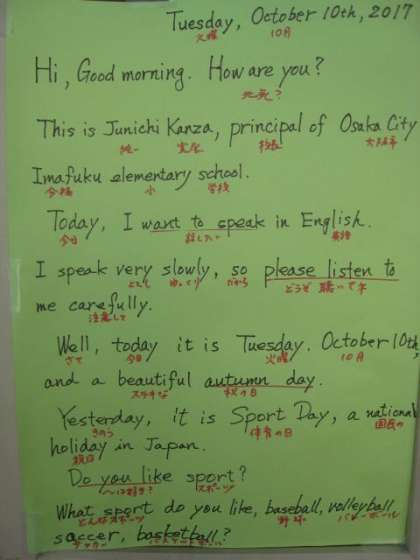 Tuesday, October 10th, 2017
火曜 10月
Hi, Good morning. How are you?
This is Junichi Kanza, principal of Osaka City
校長 大阪市
Imafuku elementary school.
今福 小 学校
Today, I want to speak in English.
今日 話したい 英語
I speak very slowly, so please listen to
とても ゆっくり だから どうぞ 聴いてネ
me carefully.
注意して
Well, today it is Tuesday. October 10th,
さて 今日 火曜 10月
and a beautiful autumn day.
ステキな 秋の日
Yesterday, it is Sport Day, a national
きのう 体育の日 国民の
holiday in Japan.
祝日
Do you like sport?
〜は好き? スポーツ
What sport do you like, baseball, volleyball
どんなスポーツ 野球 バレーボール
soccer, basketball?
サッカー バスケットボール